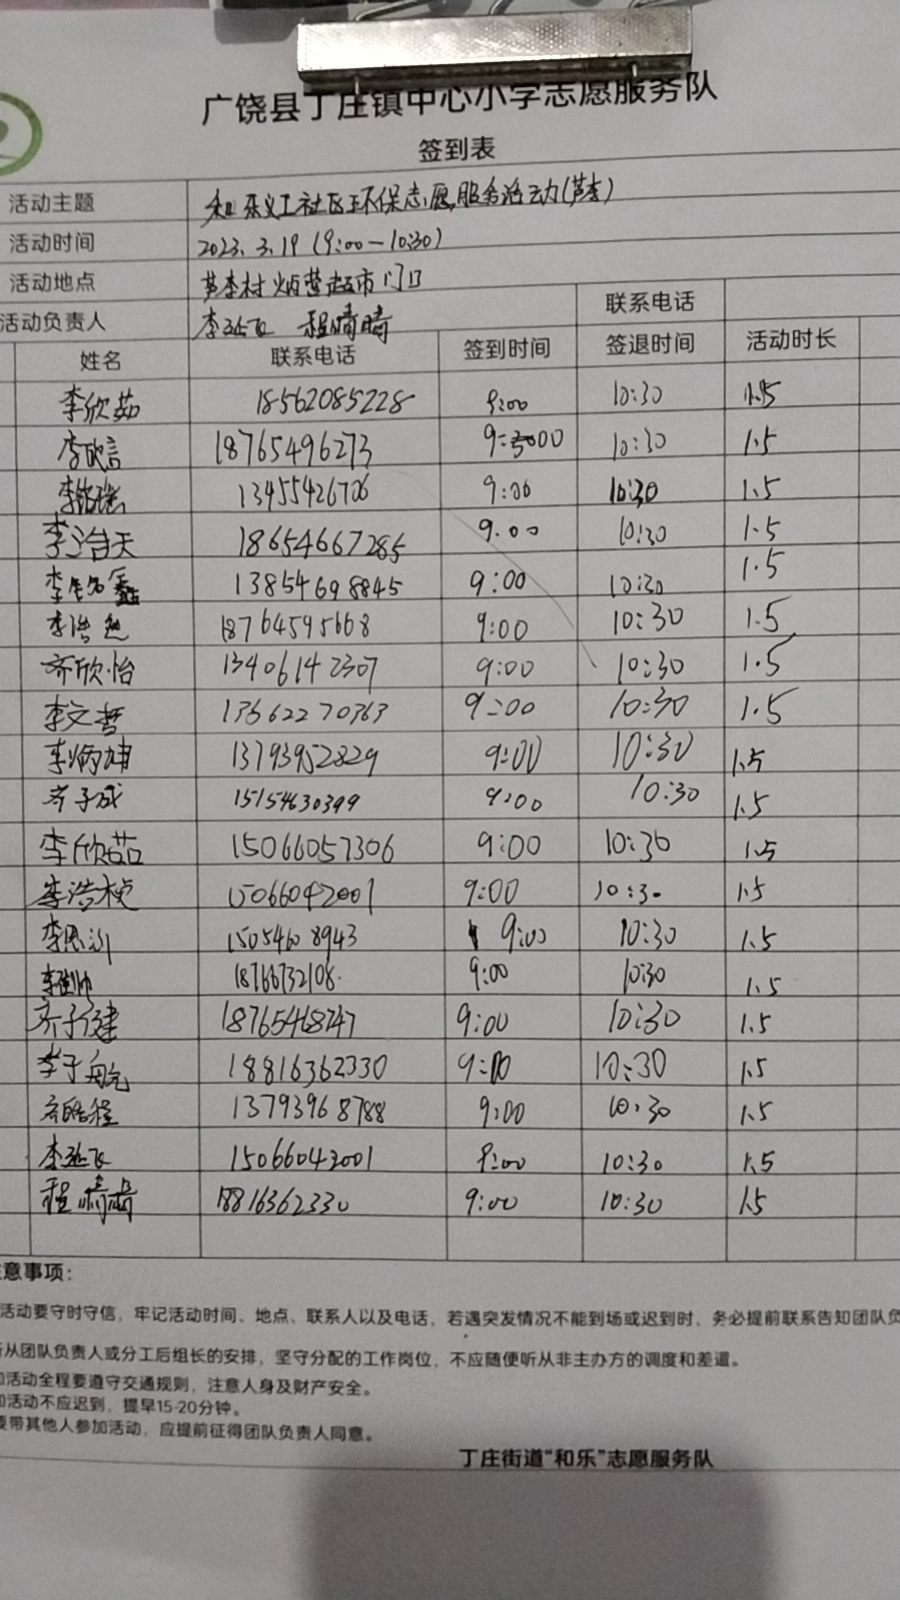 广饶县丁庄镇中心小学志愿服务队
签到表
活动主题 和乐义工社区环保志愿服务活动(芦李)
活动时间 2023.3.19 (9:00—10:30)
活动地点 芦李村炳营超市门口
活动负责人 李延飞 程晴晴 联系电话
姓名 联系电话 签到时间 签退时间 活动时长
李欣茹 18562085228 9:00 10:30 1.5
李欣言 18765496273 9:00 10:30 1.5
13455426706 9:00 10:30 1.5
李浩天 18654667285 9:00 10:30 1.5
13854698845 9:00 10:30 1.5
李浩然 18764595668 9:00 10:30 1.5
齐欣怡 13406142307 9:00 10:30 1.5
李文哲 13622270363 9:00 10:30 1.5
13793952829 9:00 10:30 1.5
齐子成 15154630399 9:00 10:30 1.5
李欣茹 15066057306 9:00 10:30 1.5
李浩桢 15066042001 9:00 10:30 1.5
15054608943 9:00 10:30 1.5
18766732108 9:00 10:30 1.5
齐子健 18765468747 9:00 10:30 1.5
李子航 18816362330 9:00 10:30 1.5
齐皓程 13793968788 9:00 10:30 1.5
李延飞 15066042001 9:00 10:30 1.5
程晴晴 18816362330 9:00 10:30 1.5
意事项：
活动要守时守信，牢记活动时间、地点、联系人以及电话，若遇突发情况不能到场或迟到时，务必提前联系告知团队负
从团队负责人或分工后组长的安排，坚守分配的工作岗位，不应随便听从非主办方的调度和差遣。
活动全程要遵守交通规则，注意人身及财产安全。
活动不应迟到，提早15-20分钟。
要带其他人参加活动，应提前征得团队负责人同意。
丁庄街道“和乐”志愿服务队